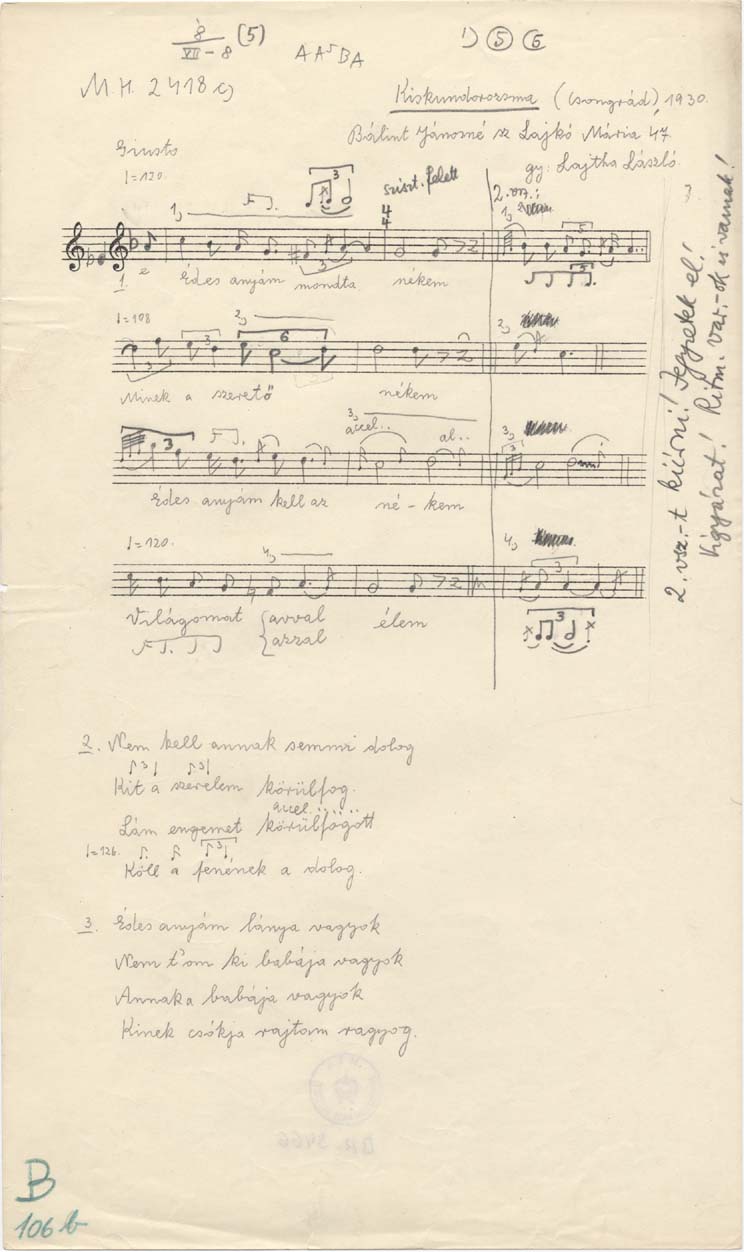 8
VII-8 (5)
A A⁵ B A
1) 5 6
M.H. 2418 c)
Kiskundorozsma (Csongrád) 1930.
Bálint Jánosné sz Lajkó Mária 47
gy: Lajtha László
Giusto
=120.
sziszt. felett
4
4
2. vsz.:
1)
3
1)
5
5
3
1. Édes anyám mondta nékem
=108
2)
3
3
6
2)
Minek a szerető nékem
3)
accel..
al..
3
3)
Édes anyám kell az né-kem
=120.
4)
4)
3
Világomat {avval élem
{azzal
3
2. vsz.-t kiírni! Jegyzetek el!
Vigyázat! Ritm. var.-ok is vannak!
2. Nem kell annak semmi dolog
3 3
Kit a szerelem körülfog.
accel.......
Lám engemet körülfogott
=126. 3
Köll a fenének a dolog.
3. Édes anyám lánya vagyok
Nem t'om ki babája vagyok
Annaka babája vagyok
Kinek csókja rajtam ragyog.
B
106 b